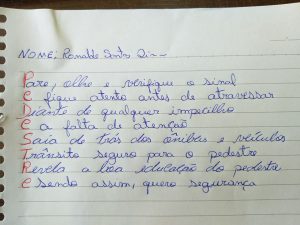 NOME: Ronaldo Santo
Pare, olhe e verifique o sinal
E fique atento antes de atravessar
Diante de qualquer impecilho
E a falta de atenção
Saia de trás dos ônibus e veículos
Trânsito seguro para o pedestre
Revela a boa educação do pedestre
E sendo assim, quero segurança